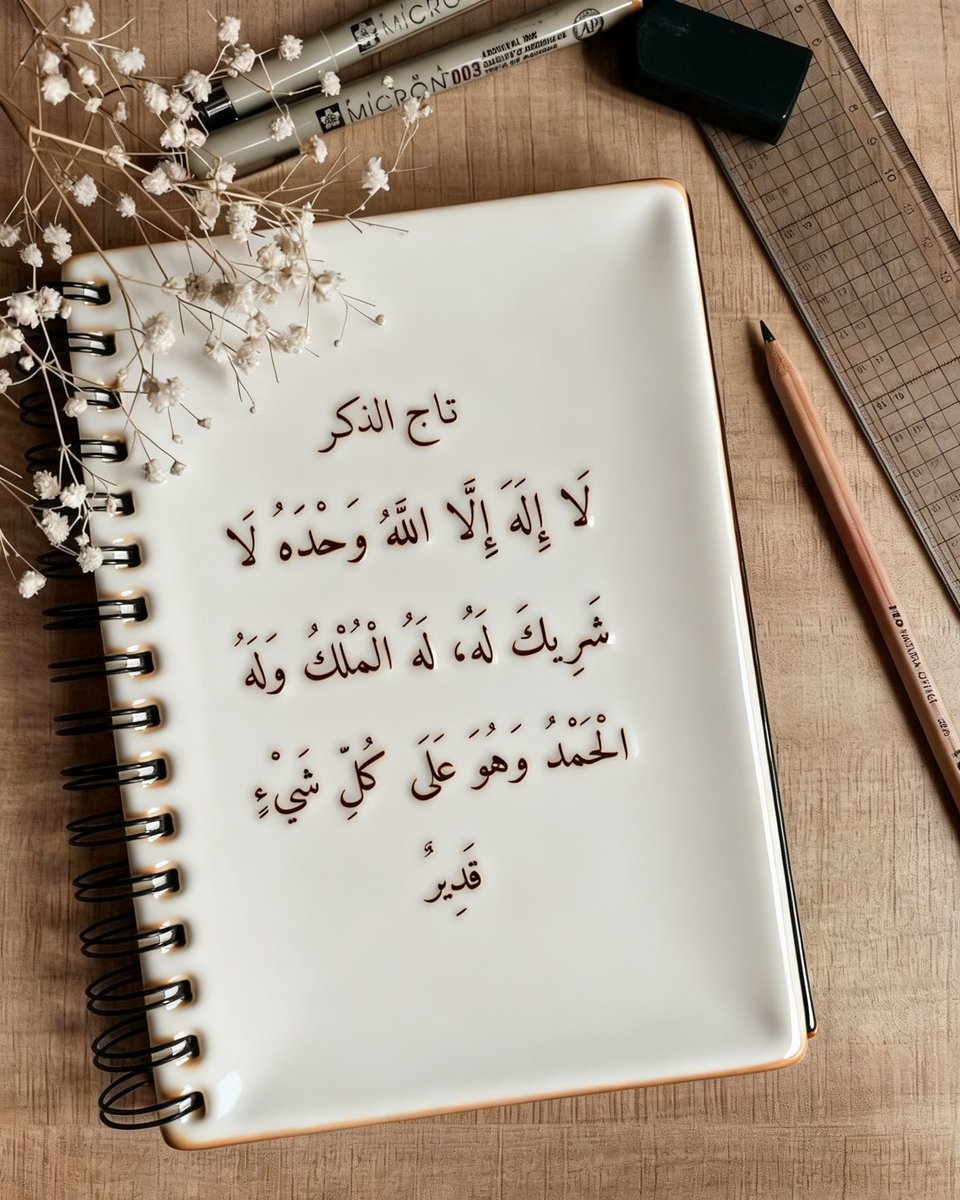 MICRO
PIGMA MICRON 003
تاج الذكر
لَا إِلَهَ إِلَّا اللَّهُ وَحْدَهُ لَا
شَرِيكَ لَهُ، لَهُ الْمُلْكُ وَلَهُ
الْحَمْدُ وَهُوَ عَلَى كُلِّ شَيْءٍ
قَدِيرٌ